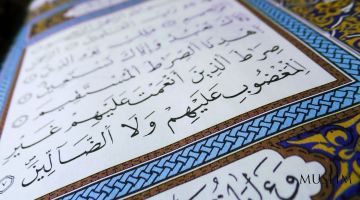 إِيَّاكَ نَعْبُدُ وَإِيَّاكَ نَسْتَعِينُ
اهْدِنَا الصِّرَاطَ الْمُسْتَقِيمَ
صِرَاطَ الَّذِينَ أَنْعَمْتَ عَلَيْهِمْ غَيْرِ
الْمَغْضُوبِ عَلَيْهِمْ وَلَا الضَّالِّينَ
MUSLIM